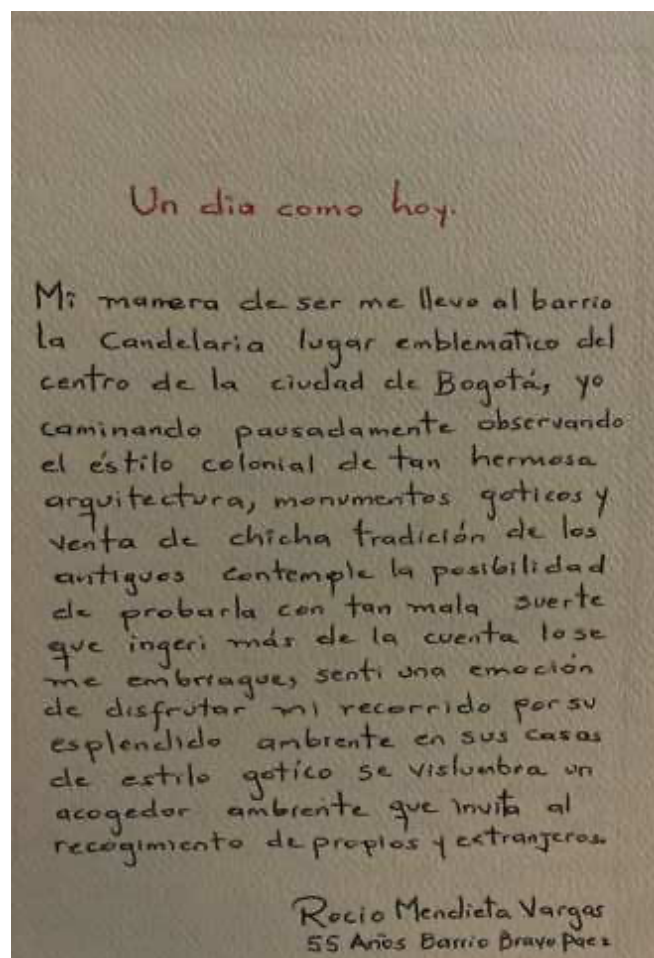 Un dia como hoy.
Mi manera de ser me llevo al barrio
la Candelaria lugar emblemático del
centro de la ciudad de Bogotá, yo
caminando pausadamente observando
el éstilo colonial de tan hermosa
arquitectura, monumentos goticos y
venta de chicha tradición de los
antiguos contemple la posibilidad
de probarla con tan mala suerte
que ingeri más de la cuenta lo se
me embriague, senti una emoción
de disfrutar mi recorrido por su
esplendido ambiente en sus casas
de estilo gotico se vislumbra un
acogedor ambiente que invita al
recogimiento de propios y extranjeros.
Rocio Mendieta Vargas
55 Años Barrio Bravo Paez